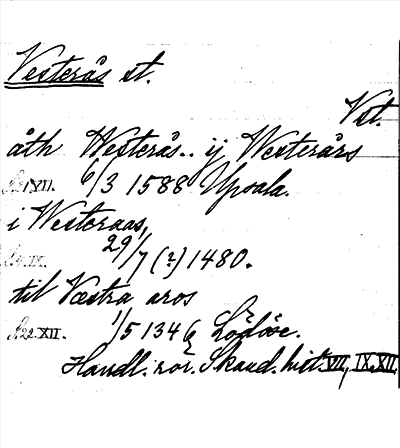 Vesterås st.
Vst.
åth Westerås.. ij Westerårs
XII. 6/3 1588 Upsala.
i Westeraas,
29/7 (?) 1480.
til Væstra aros
S. 22. XII. 1/5 1346 Lödöse.
Handl. rör. Skand. hist. VII, IX, XII.